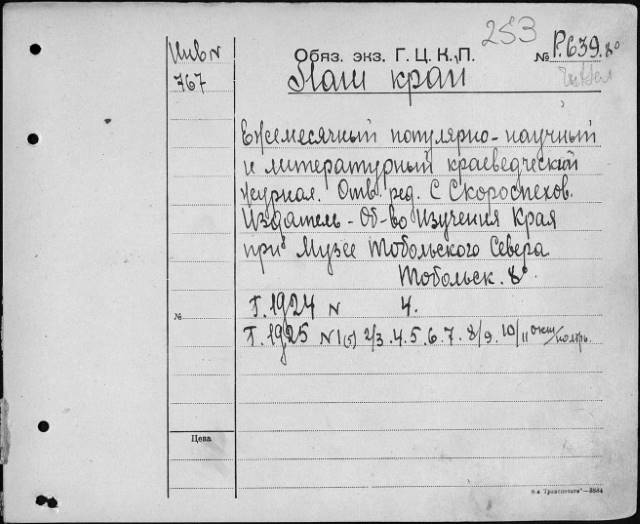 253
Инв N
767
Обяз. экз. Г. Ц. К. П.
№ Р.639. 8°
Наш край
Ежемесячный популярно-научный
и литературный краеведческий
журнал. Отв. ред. С Скороспехов.
Издатель - Об-во Изучения Края
при Музее Тобольского Севера
Тобольск. 8°
Г. 1924 N 4.
№
Г. 1925 N 1(5) 2/3 .4.5.6.7. 8/9. 10/11 окт/ноябрь.
Цена
—3884